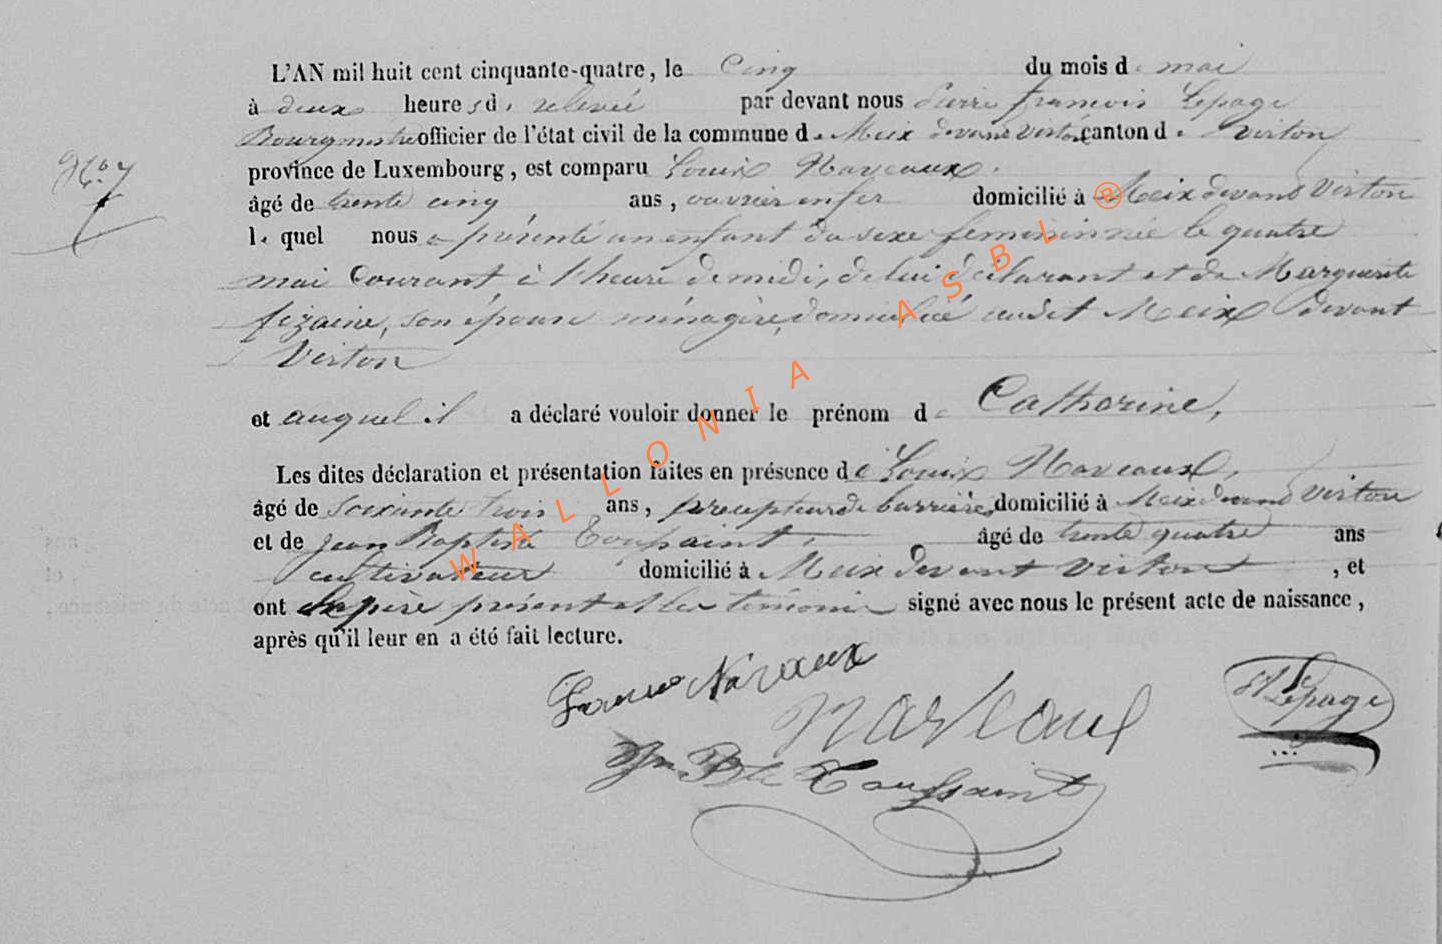 L'AN mil huit cent cinquante-quatre, le Cinq du mois de mai
à deux heures de relevée par devant nous Pierre françois Lepage
Bourgmestre officier de l'état civil de la commune de Meix devant Virton canton de Virton
N° 7
province de Luxembourg, est comparu Louis Naveaux.
âgé de trente cinq ans, ouvrier en fer domicilié à Meix devant Virton
lequel nous a présenté un enfant du sexe feminin née le quatre
mai Courant, à l'heure de midi, de lui déclarant et de Marguerite
fizaine, son épouse ménagère, domicilié audit Meix devant
Virton
et auquel il a déclaré vouloir donner le prénom de Catherine,
Les dites déclaration et présentation faites en présence de Louis Naveaux,
âgé de soixante trois ans, precepteur de barrière, domicilié à Meix devant Virton
et de jean Baptiste Toussaint, âgé de trente quatre ans
cultivateur domicilié à Meix devant Virton, et
ont le père présent et les témoins signé avec nous le présent acte de naissance,
après qu'il leur en a été fait lecture.
Naveaux
Naveaux
Lepage
Jn Bte Toussaint
WALLONIA ASBL ®